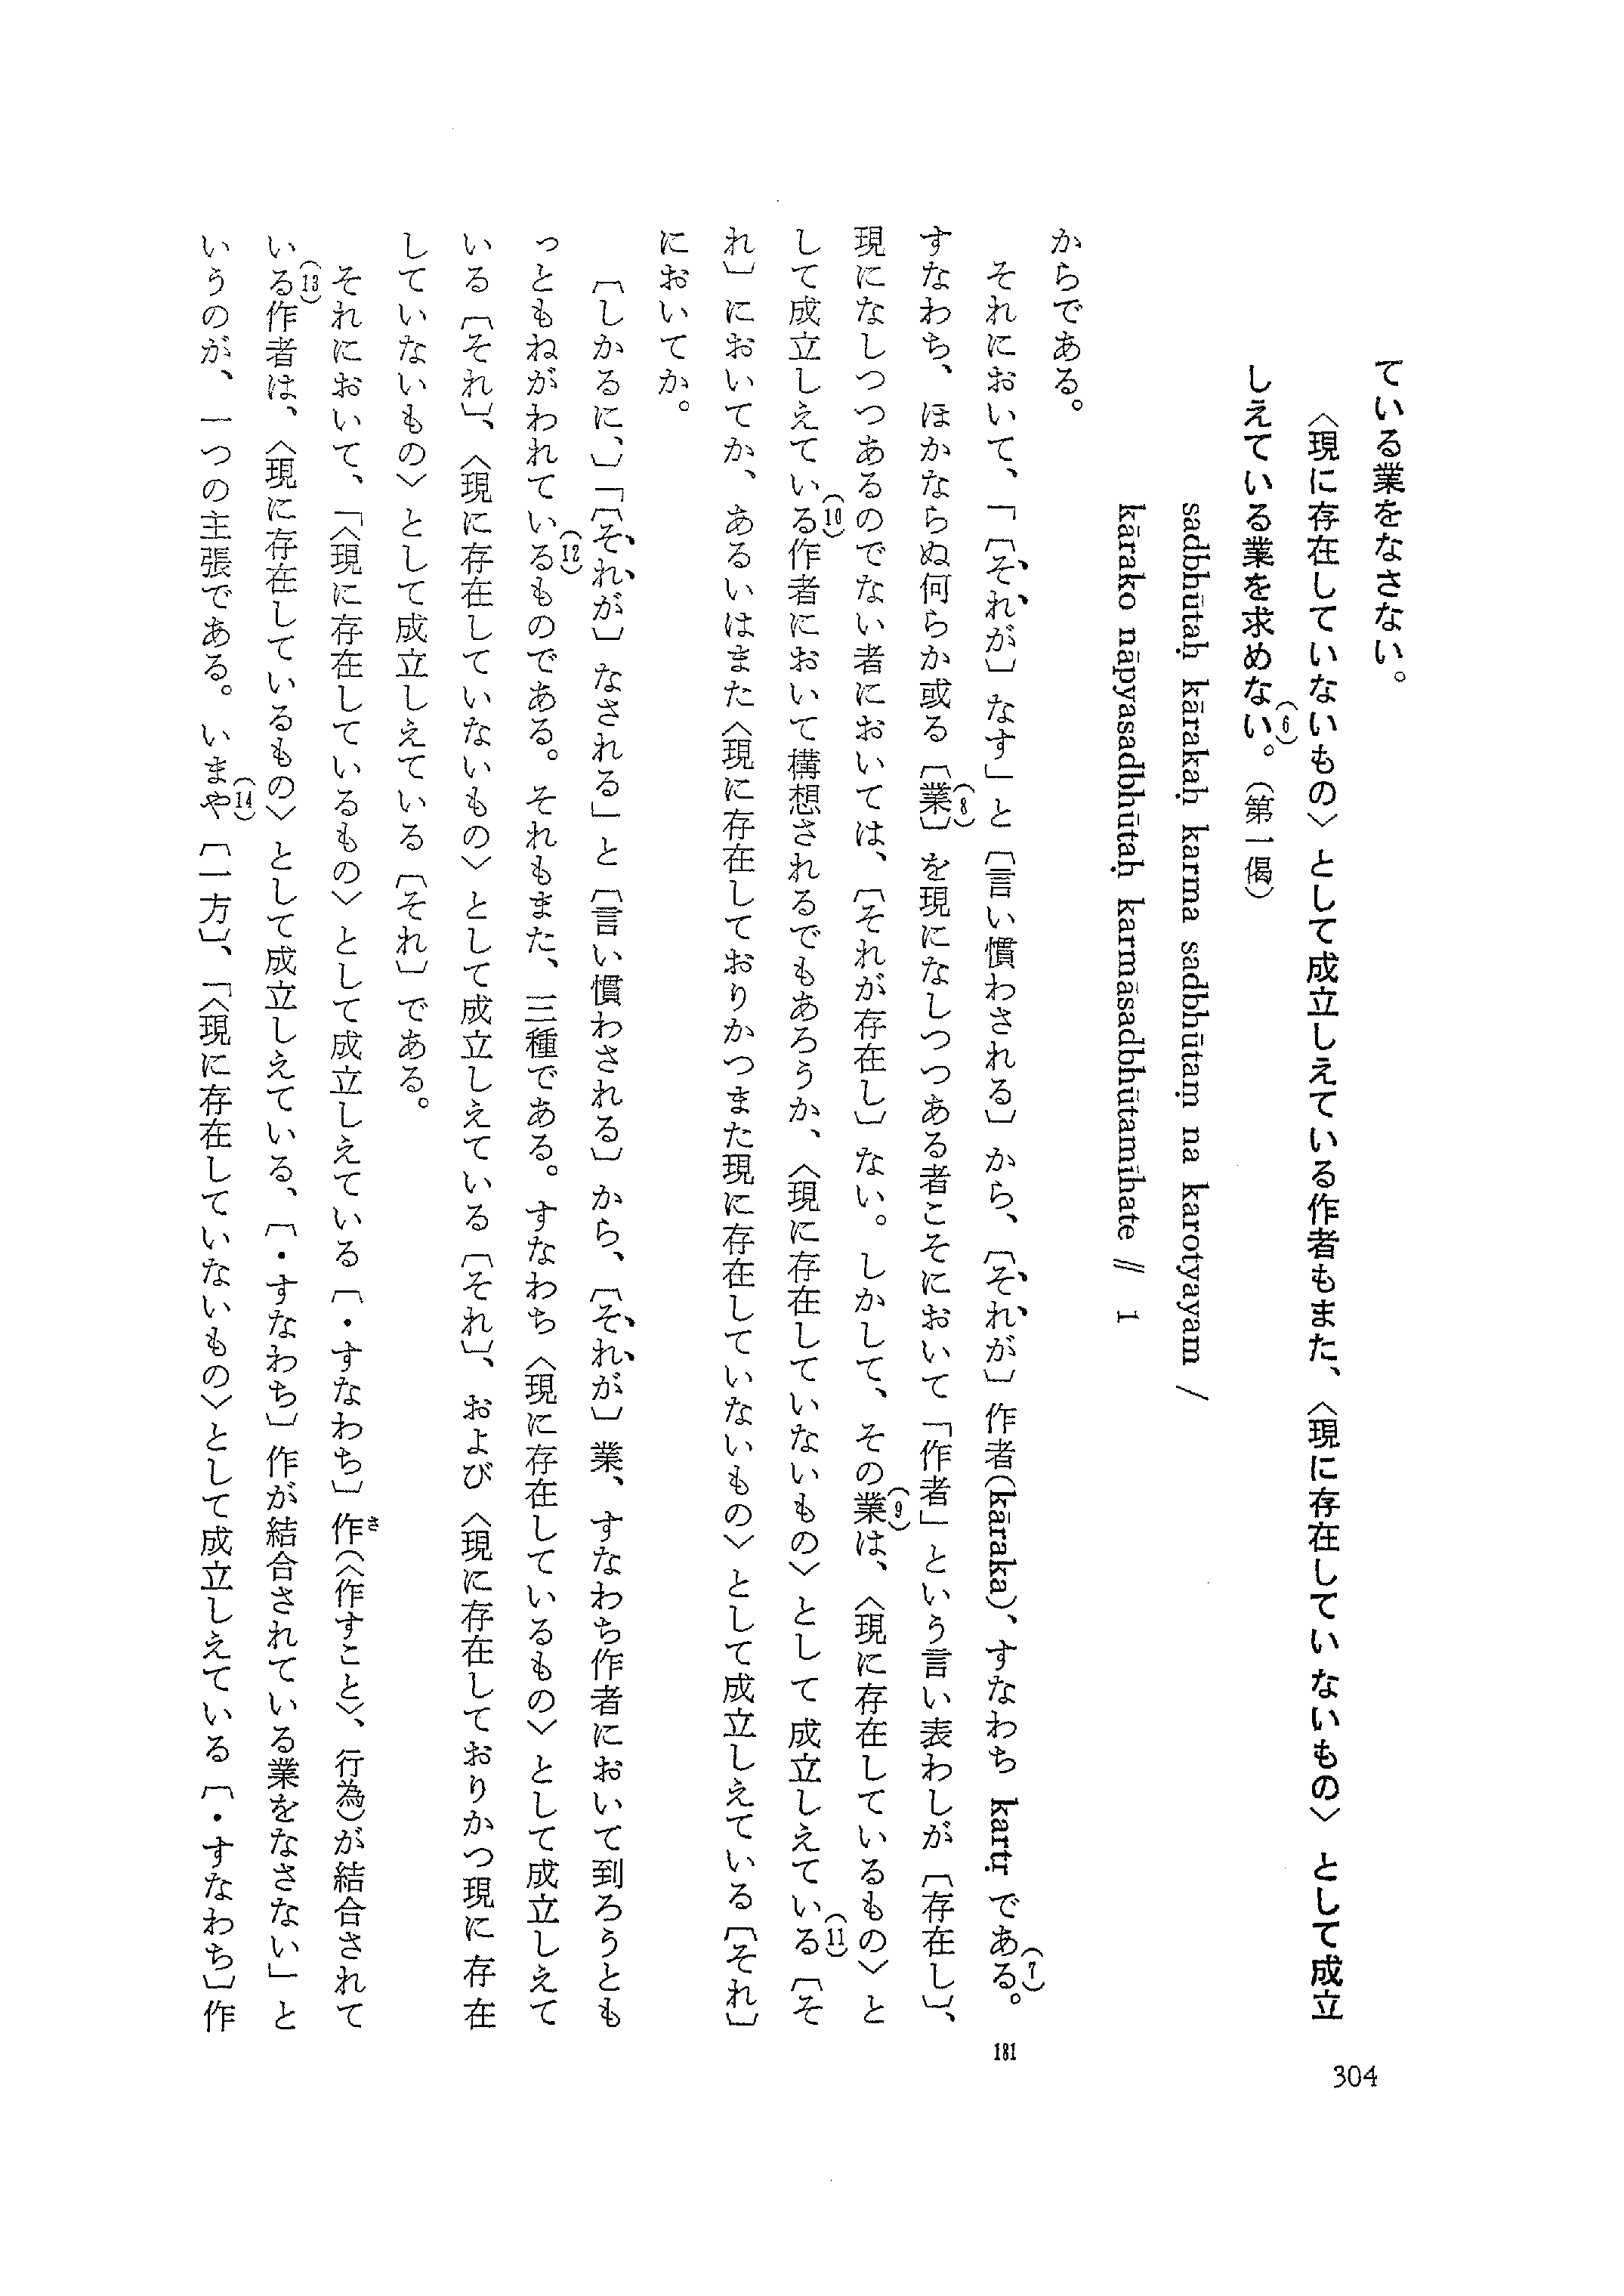 ている業をなさない。
〈現に存在していないもの〉として成立しえている作者もまた、〈現に存在していないもの〉として成立
しえている業を求めない。(6)（第一偈）
sadbhūtaḥ kārakaḥ karma sadbhūtaṃ na karotyayam /
kārako nāpyasadbhūtaḥ karmāsadbhūtamīhate // 1
からである。
それにおいて、「〔それが〕なす」と〔言い慣わされる〕から、〔それが〕作者(kāraka)、すなわち kartṛ である。(7)
181
すなわち、ほかならぬ何らか或る〔業〕(8)を現になしつつある者こそにおいて「作者」という言い表わしが〔存在し〕、
現になしつつあるのでない者においては、〔それが存在し〕ない。しかして、その業(9)は、〈現に存在しているもの〉と
して成立しえている(10)作者において構想されるでもあろうか、〈現に存在していないもの〉として成立しえている(11)〔そ
れ〕においてか、あるいはまた〈現に存在しておりかつまた現に存在していないもの〉として成立しえている〔それ〕
においてか。
〔しかるに、〕「〔それが〕なされる」と〔言い慣わされる〕から、〔それが〕業、すなわち作者において到ろうとも
っともねがわれている(12)ものである。それもまた、三種である。すなわち〈現に存在しているもの〉として成立しえて
いる〔それ〕、〈現に存在していないもの〉として成立しえている〔それ〕、および〈現に存在しておりかつ現に存在
していないもの〉として成立しえている〔それ〕である。
それにおいて、「〈現に存在しているもの〉として成立しえている〔・すなわち〕作(さ)(〈作すこと〉、行為)が結合されて
いる(13)作者は、〈現に存在しているもの〉として成立しえている、〔・すなわち〕作が結合されている業をなさない」と
いうのが、一つの主張である。いまや(14)〔一方〕、「〈現に存在していないもの〉として成立しえている〔・すなわち〕作
304